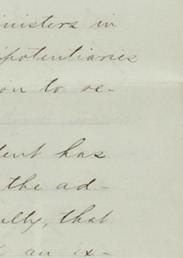 nisters in
ipotentiaries
on to re-
dent has
the ad-
ully, that
an ex-